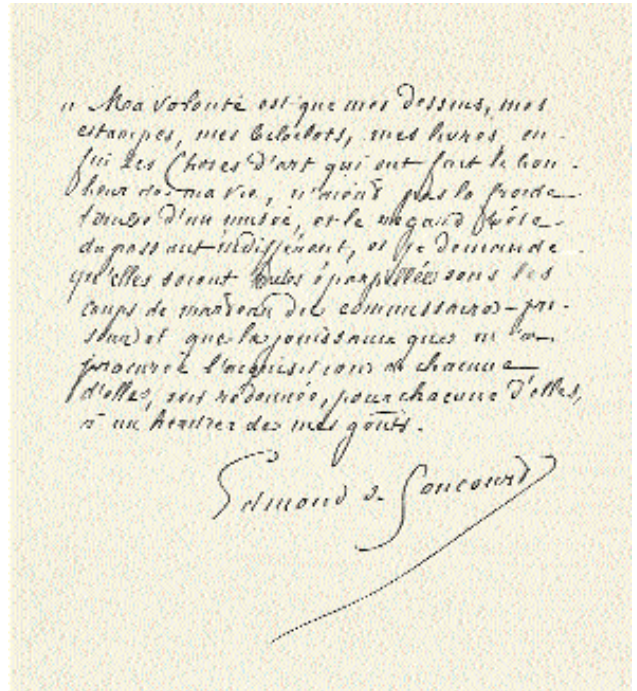 " Ma volonté est que mes dessins, mes
estampes, mes bibelots, mes livres, en-
fin les choses d'art qui ont fait le bon-
heur de ma vie, n'aient pas la froide
tombe d'un musée, et le regard bête
du passant indifférent, et je demande
qu'elles soient toutes éparpillées sous les
coups de marteau des commissaires-pri-
seurs et que la jouissance que m'a
procurée l'acquisition de chacune
d'elles, soit redonnée, pour chacune d'elles,
à un héritier de mes goûts.
Edmond de Goncourt